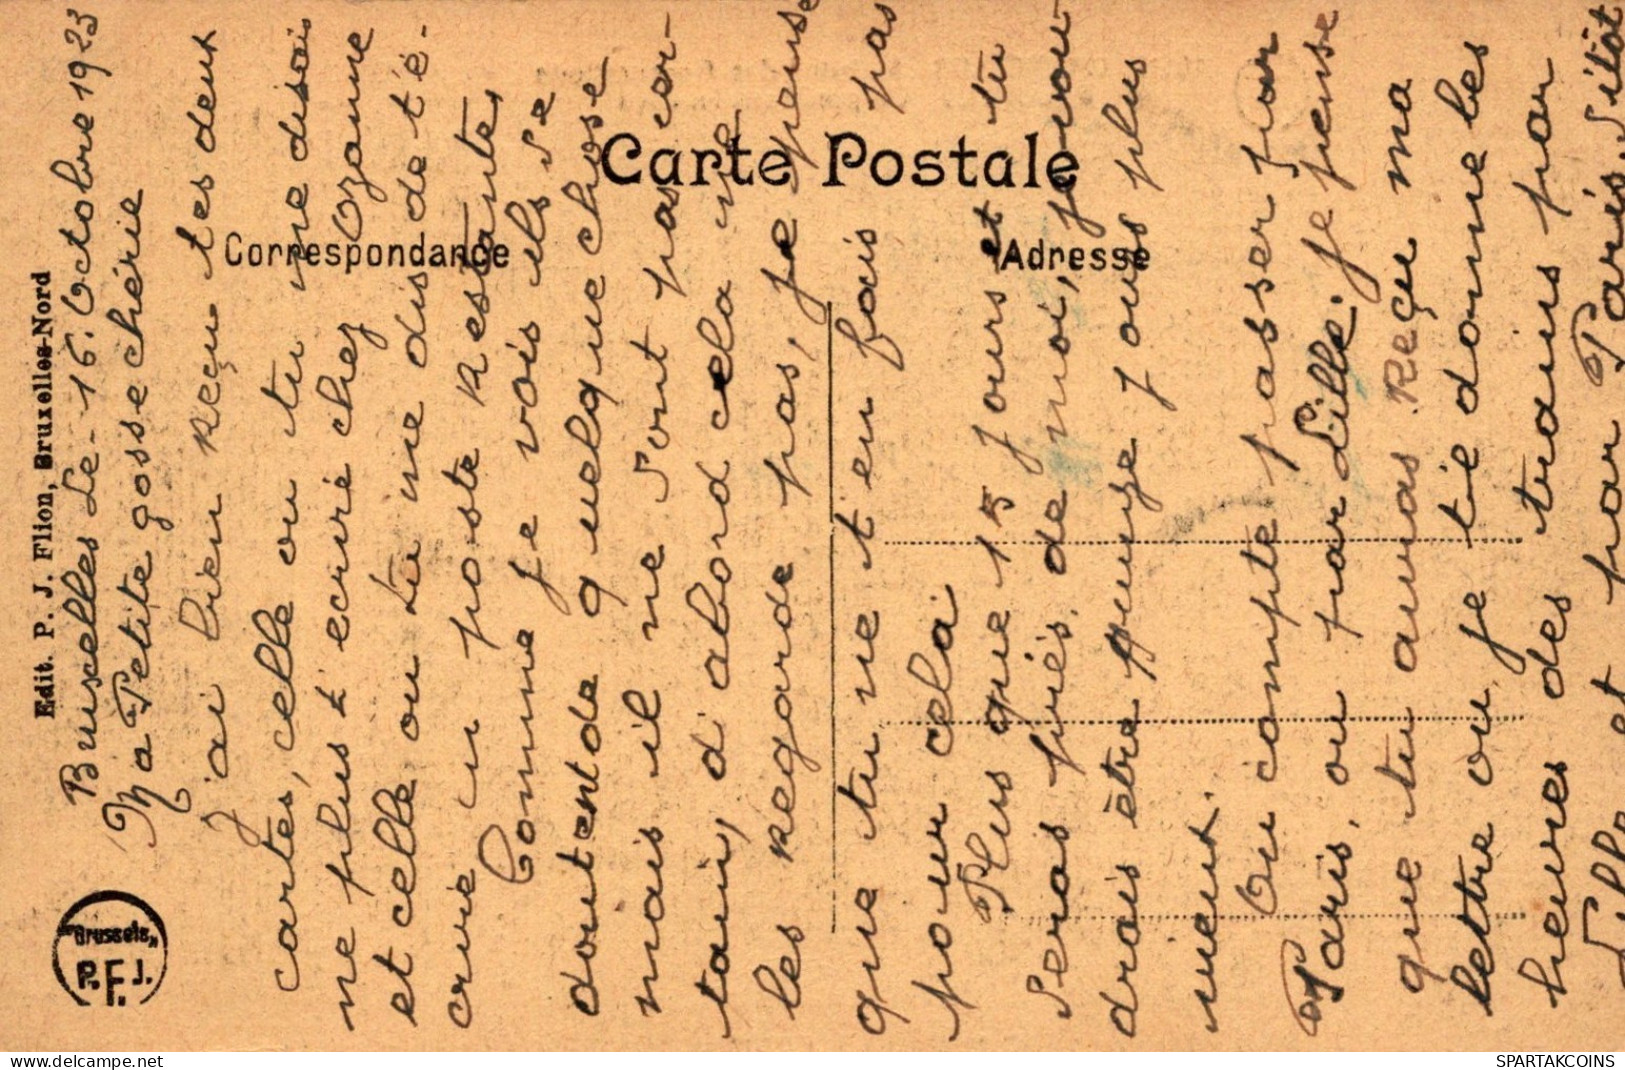 Edit. P. J. Flion, Bruxelles-Nord
"Brussels"
P.F.J.
F.
Carte Postale
Correspondance
Adresse
Bruxelles Le 16. Octobre 1923
Ma Petite gosse chérie
J'ai bien reçu tes deux
cartes, celle ou tu me disais
ne plus t'ecrire chez Ozanne
et celle ou tu me dis de t'é-
crire en poste restante,
Comme je vois ils se
doutent de quelque chose
mais il ne sont pas cer-
tain, d'abord cela ne
les regarde pas, je pense
que tu ne t'en fais pas
pour cela.
Plus que 15 jours et tu
seras près de moi, je vou-
drais être quinze jours plus
vieux.
Ou compte passer par
Paris, ou par Lille. je pense
que tu auras reçu ma
lettre ou je t'é donne les
heures des trains par
Lille et par Paris. Sitôt
SPARTAKCOINS
2023/02/16 12:22